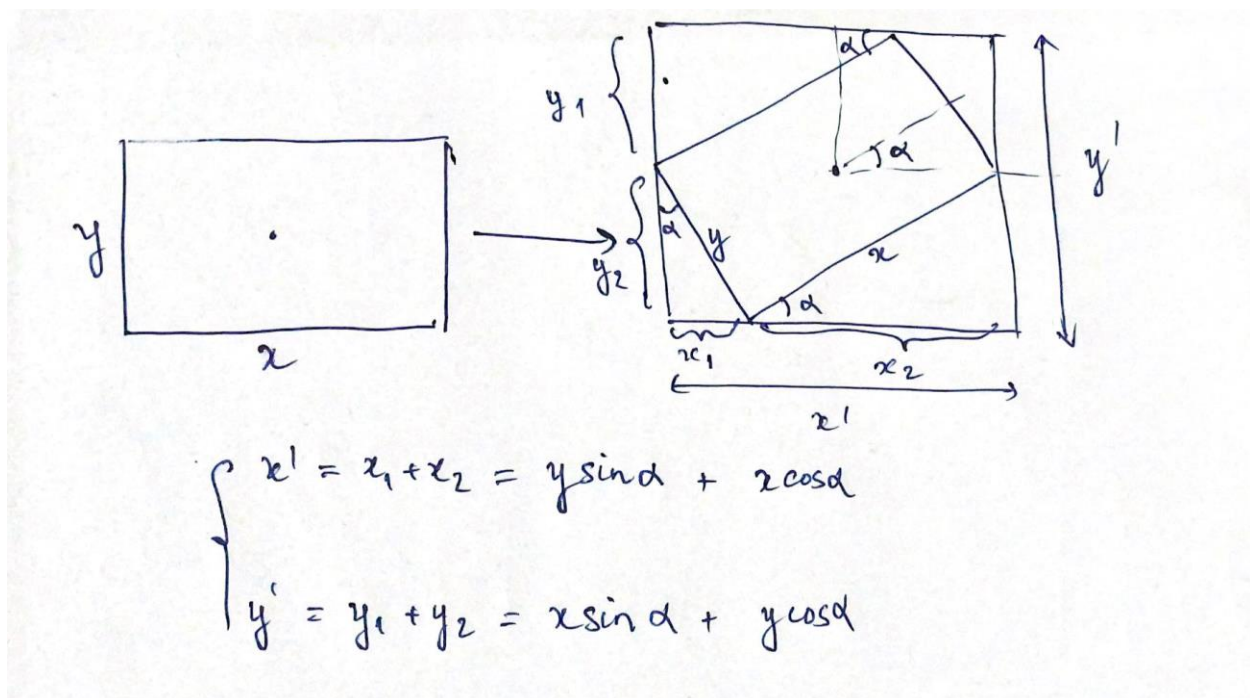 α
y₁
α
y'
y
α
y
x
y₂
α
x
x₁
x₂
x'
x' = x₁ + x₂ = y sinα + x cosα
y' = y₁ + y₂ = x sin α + y cosα